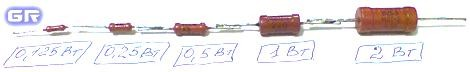 GR
0,125 Вт
0,25 Вт
0,5 Вт
1 Вт
2 Вт